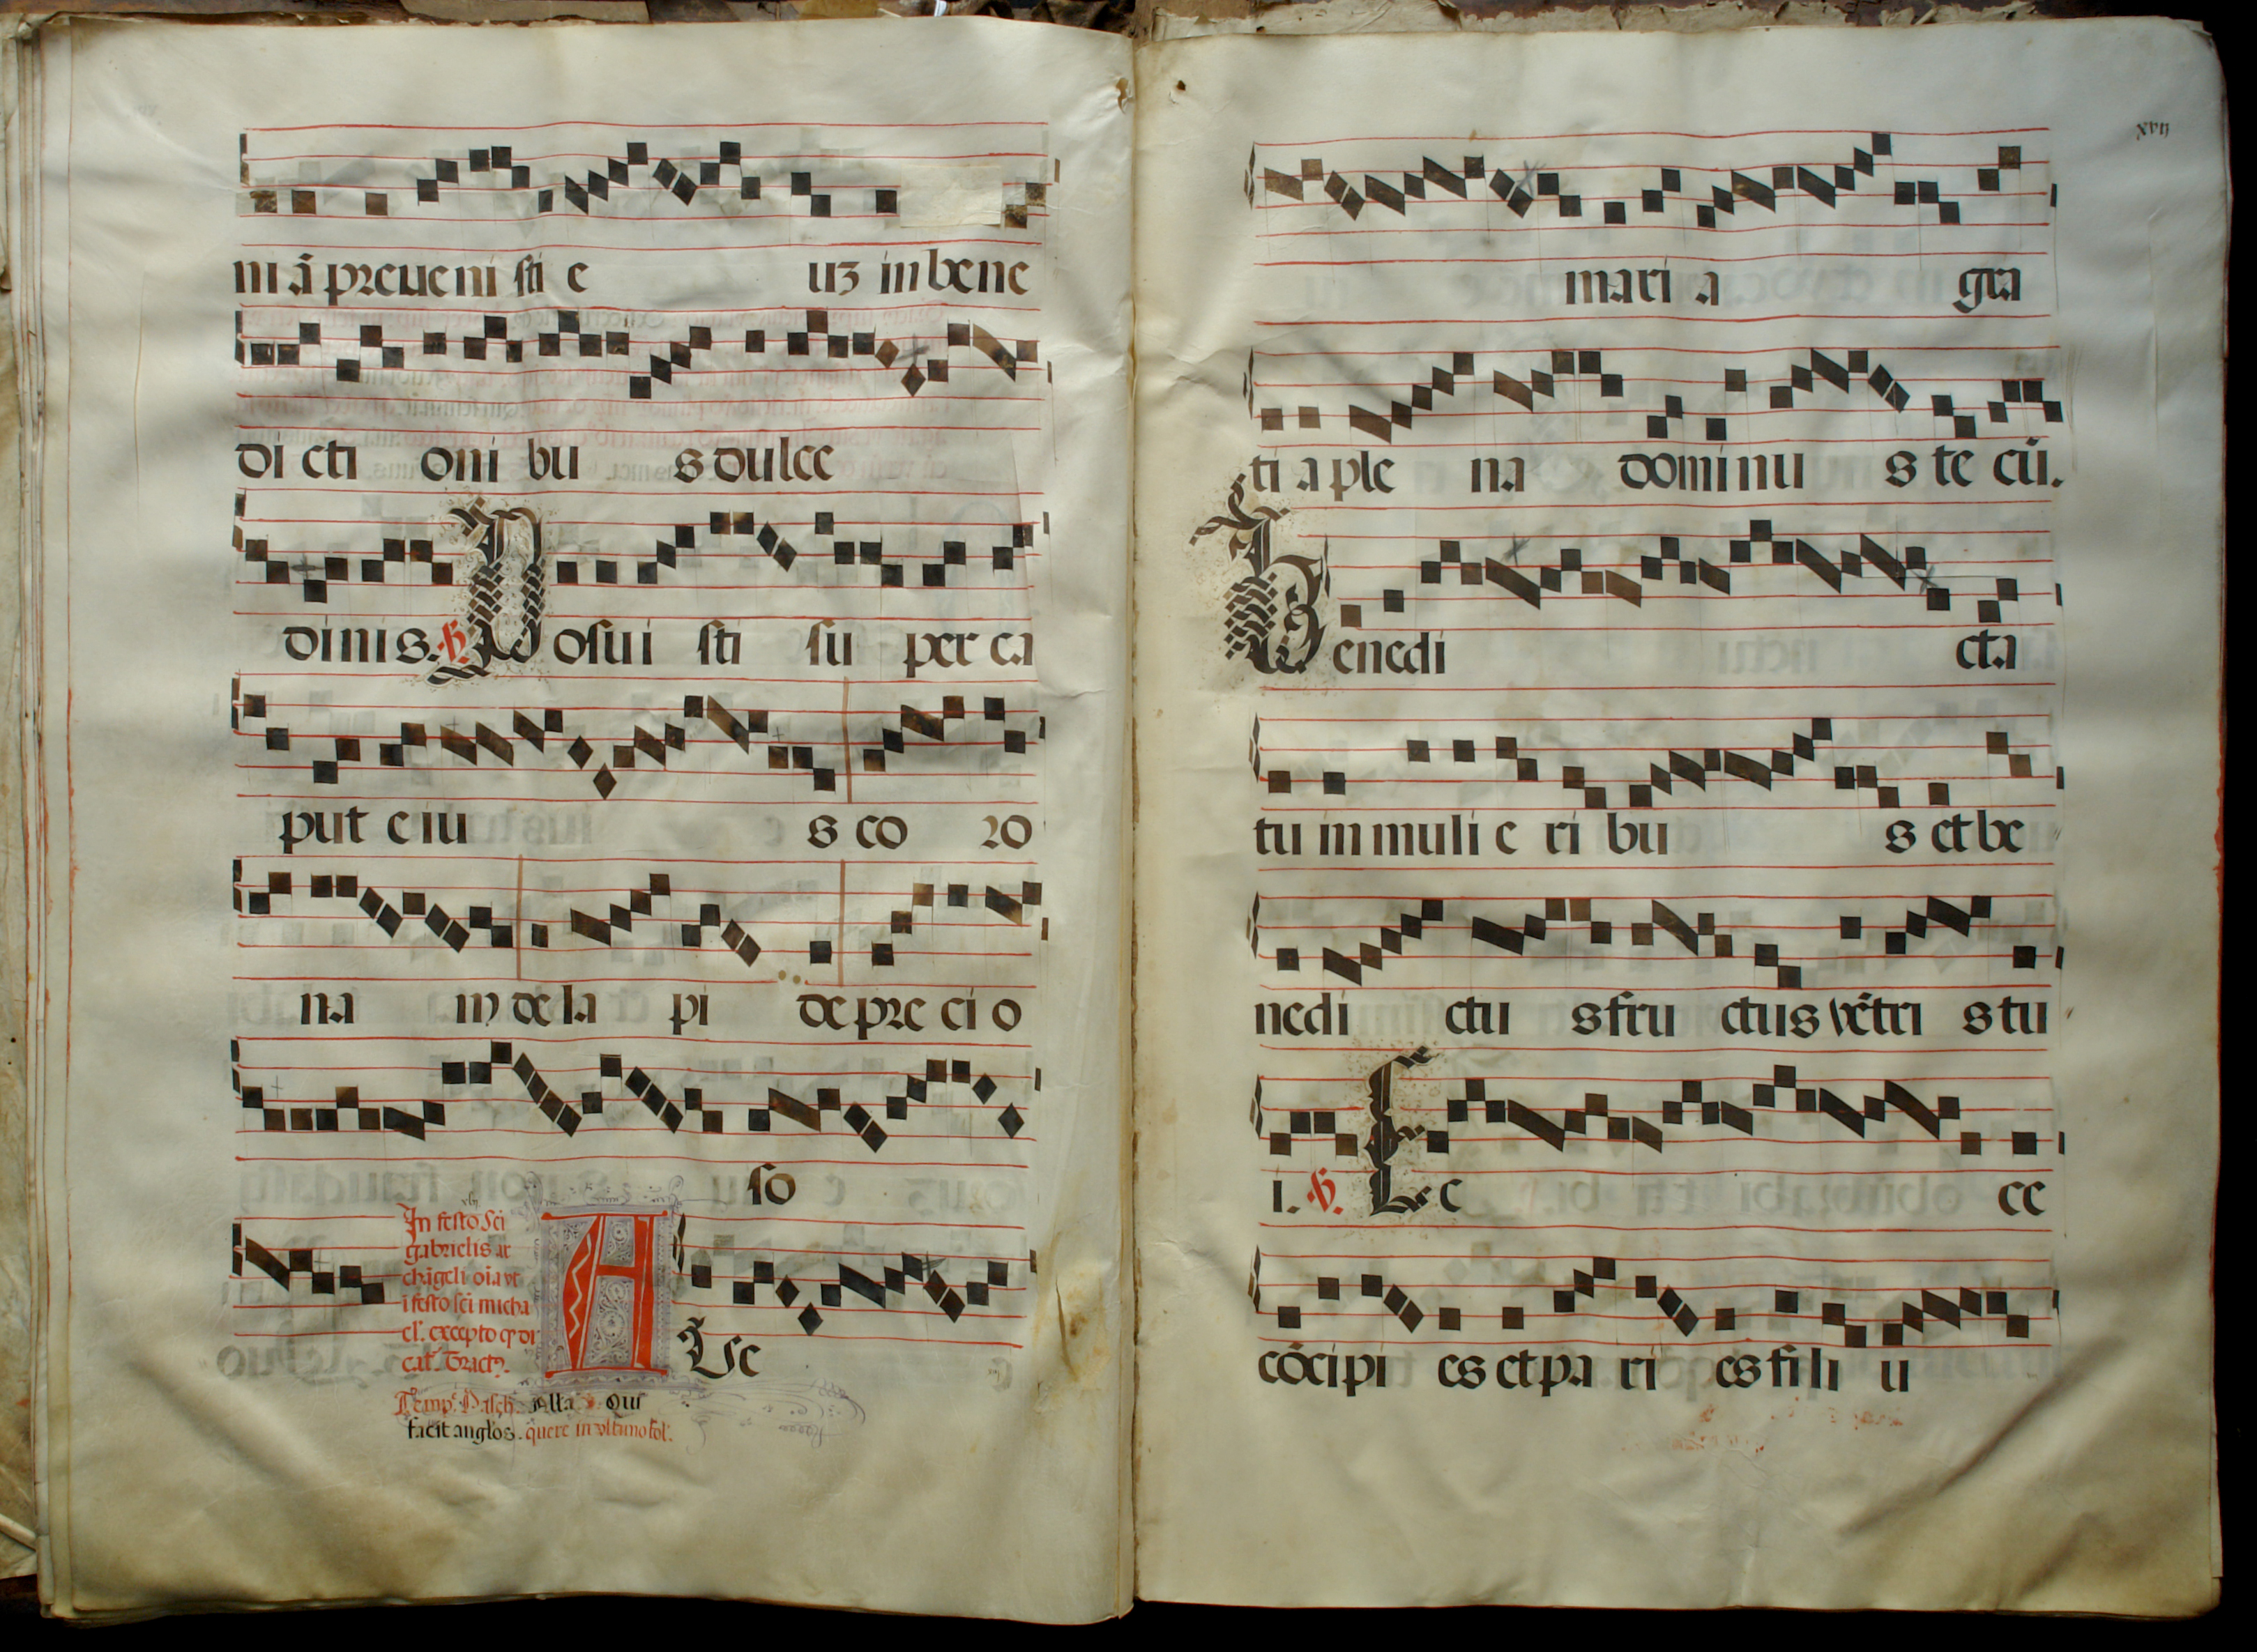 ni ā preueni sti e uʒ in bene
di cti oni bu s dulce
dinis. ℣. Posui sti su per ca
put eiu s co ro
na m de la pi de pre ci o
so
In festo Sci
gabrielis ar
chāgeli oīa vt
ī festo sci micha
el. excepto qꝫ di
cat. Tract9.
A Ue
Temp. Pasch. Alla ℣. Qui
facit anglos. quere in vltimo fol.
xvij
mari a gra
ti a ple na dominu s te cū.
Benedi cta
tu in muli e ri bu s et be
nedi ctu s fru ctus vētri s tu
i. ℣. Ec ce
cōcipi es et pa ri es fi li u